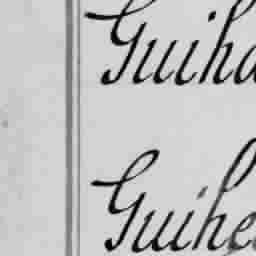 Guiha
Guihe